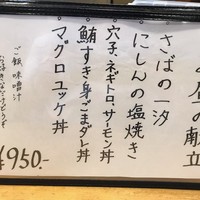 昼の献立
・さばの一汐
・にしんの塩焼き
・穴子、ネギトロ、サーモン丼
・鮪すき身ごまダレ丼
・マグロユッケ丼
ご飯 味噌汁
¥950.-